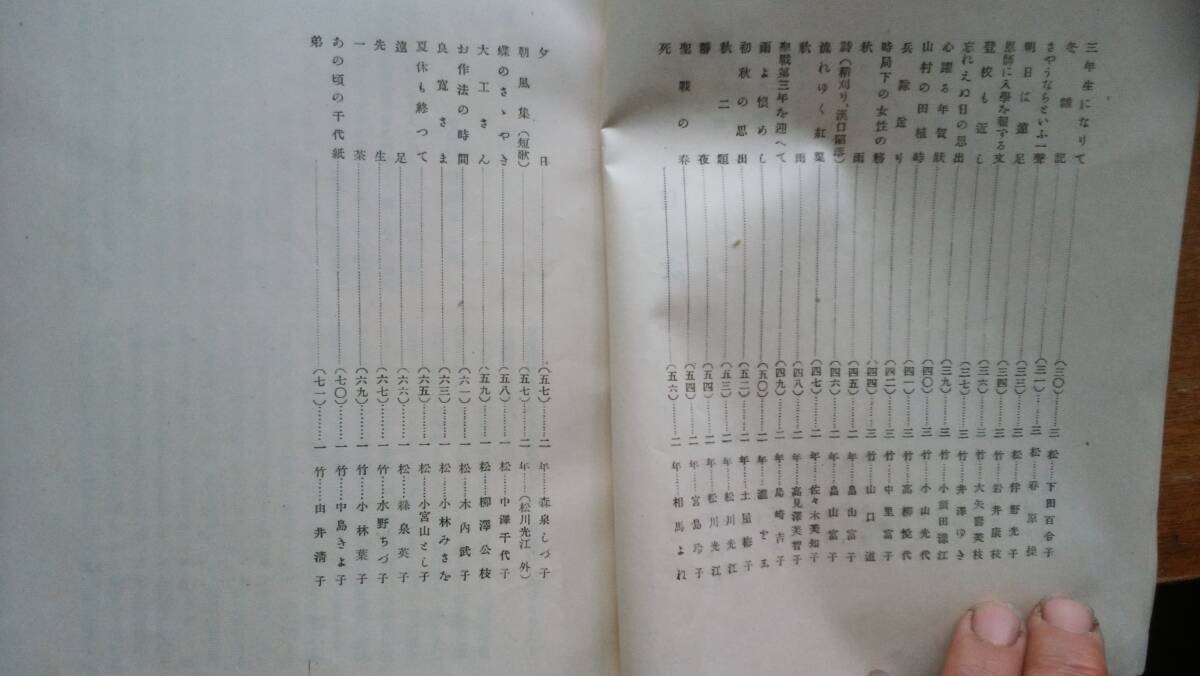 三年生になりて……(三〇)……三松……下田百合子
冬雑記……(三一)……三松……春原操
さやうならといふ一聲……(三三)……三松……伴野光子
明日は遠足……(三四)……三竹……岩井康枝
恩師に入學を報する文……(三六)……三竹……大矢喜美枝
登校も近し……(三七)……三竹……井澤ゆき
忘れえぬ日の思出……(三九)……三竹……小須田
心躍る年賀狀……(四〇)……三竹……小山光代
山村の田植時……(四一)……三竹……高柳悦代
兵隊送り……(四二)……三竹……中里富子
時局下の女性の務……(四四)……三竹……山口
秋雨……(四五)……二年……畠山富子
詩(稲刈り、漢口陥落)……二年……畠山富子
流れゆく紅葉……(四七)……二年……佐々木美知子
秋雨……(四八)……二年……高見澤美智子
聖戰第三年を迎へて……(四九)……二年……島崎吉子
雨よ恨めし……(五〇)……二年……瀧や玉
初秋の思出……(五二)……二年……土屋梅子
秋二題……(五三)……二年……松川光江
靜夜……(五四)……二年……松川光江
聖戰の春……(五四)……二年……宮島玲子
死……(五六)……二年……相馬よね
夕日……(五七)……二年……森泉しづ子
朝風集(短歌)……(五七)……二年……(松川光江 外)
蝶のさゝやき……(五八)……一松……中澤千代子
大工さん……(五九)……一松……柳澤公枝
お作法の時間……(六一)……一松……木内武子
良寬さま……(六三)……一松……小林みさを
夏休も終つて……(六五)……一松……小宮山とし子
遠足……(六六)……一松……森泉英子
先生……(六七)……一竹……水野ちづ子
一茶……(六九)……一竹……小林葉子
あの頃の千代紙……(七〇)……一竹……中島きよ子
弟……(七一)……一竹……由井淸子